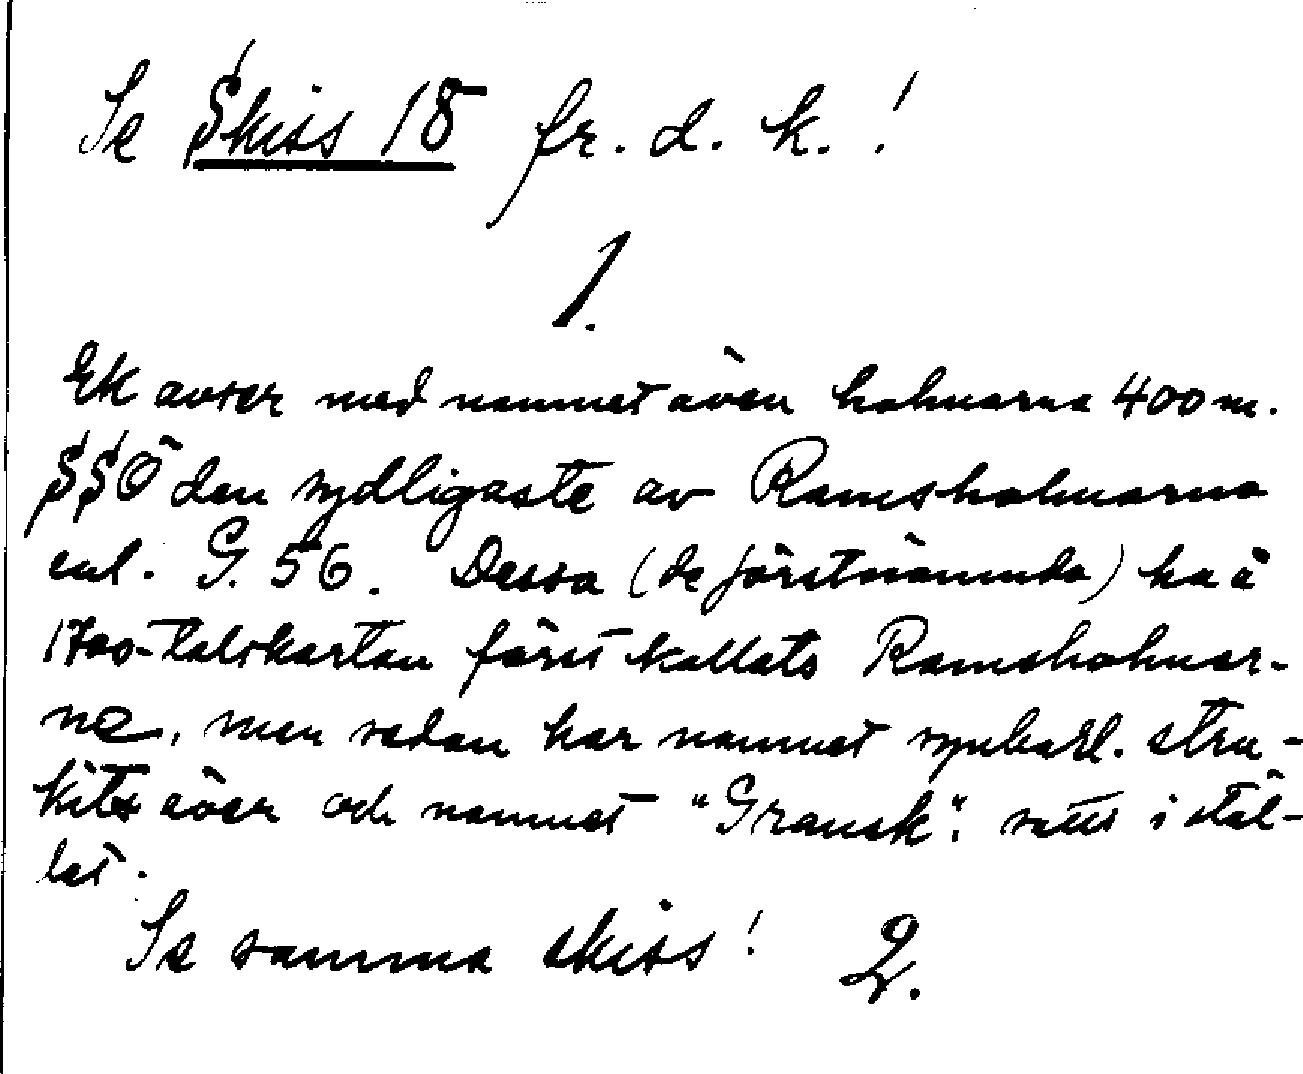 Se Skiss 18 fr. d. k.!
1.
Ek avser med namnet även holmarna 400 m.
SSÖ den sydligaste av Ramsholmarna
enl. G. 56. Dessa (de förstnämnda) ha å
1700-talskartan först kallats Ramsholmar-
na, men sedan har namnet synbarl. stru-
kits över och namnet "Gransk". satts i stäl-
let.
Se samma skiss! 2.